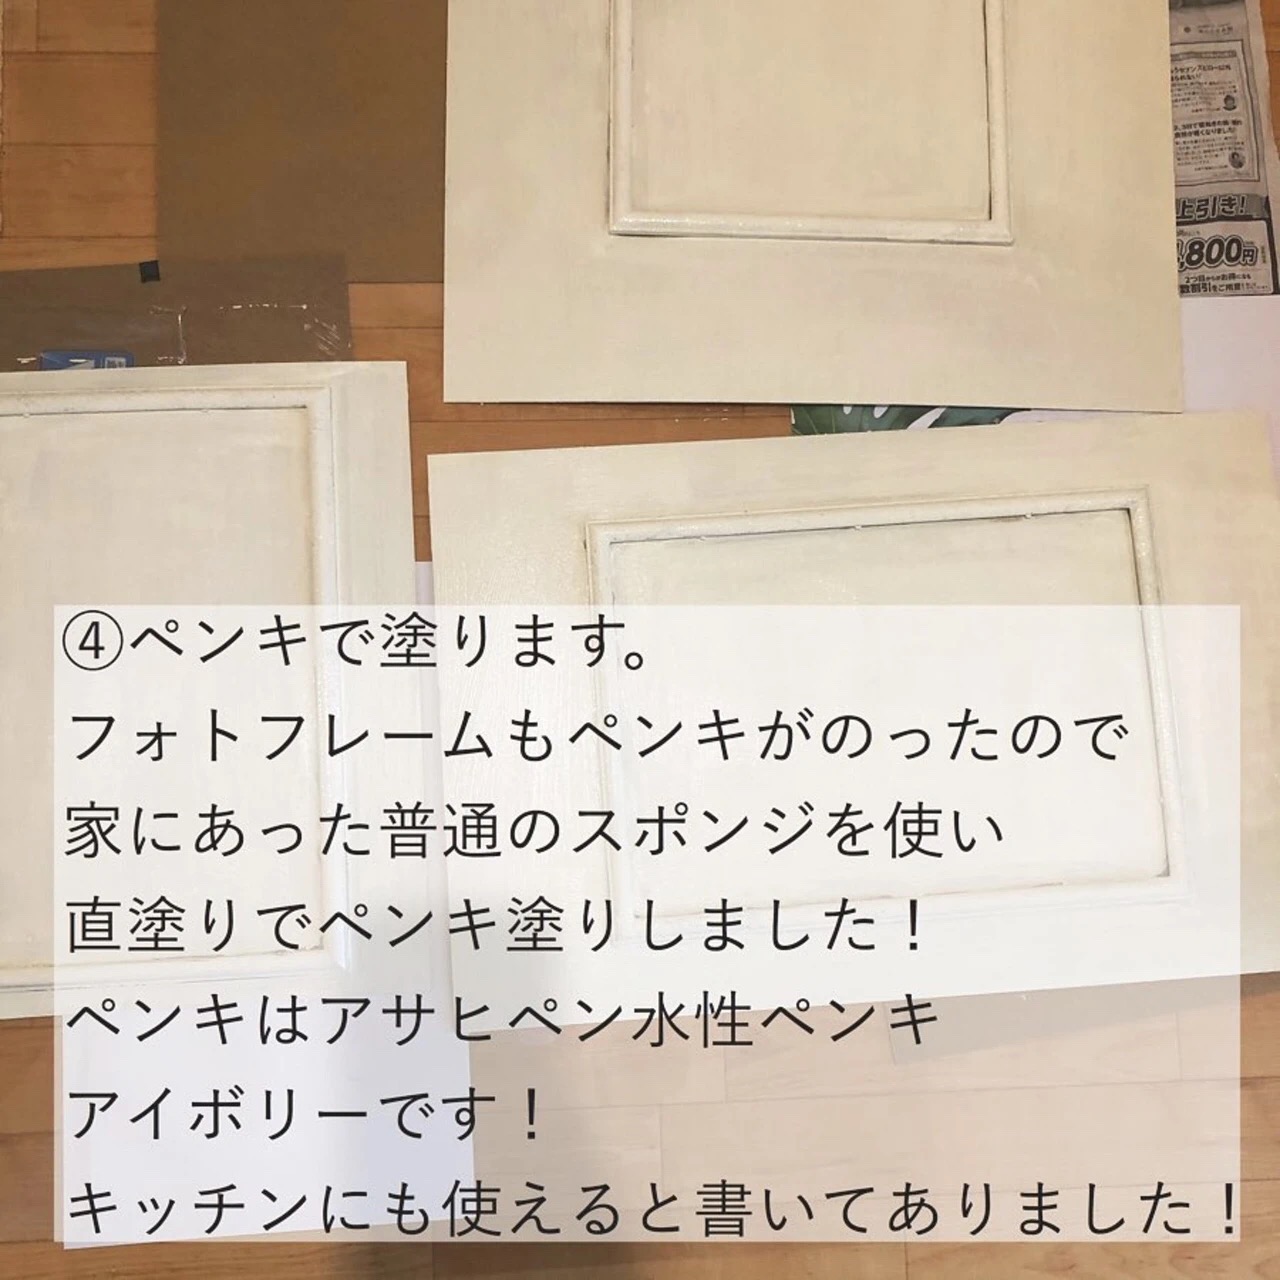 上引き!
800円
2つ目からがお得になる
数割引をご用意!
④ペンキで塗ります。
フォトフレームもペンキがのったので
家にあった普通のスポンジを使い
直塗りでペンキ塗りしました！
ペンキはアサヒペン水性ペンキ
アイボリーです！
キッチンにも使えると書いてありました！